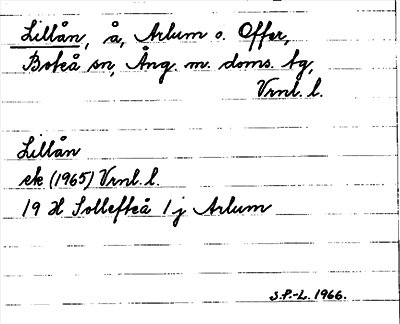 Lillån, å, Arlum o. Offer,
Boteå sn, Ång. m. doms. tg,
Vrnl. l.
Lillån
ek (1965) Vrnl. l.
19 H Sollefteå 1 j Arlum
S.P.-L. 1966.